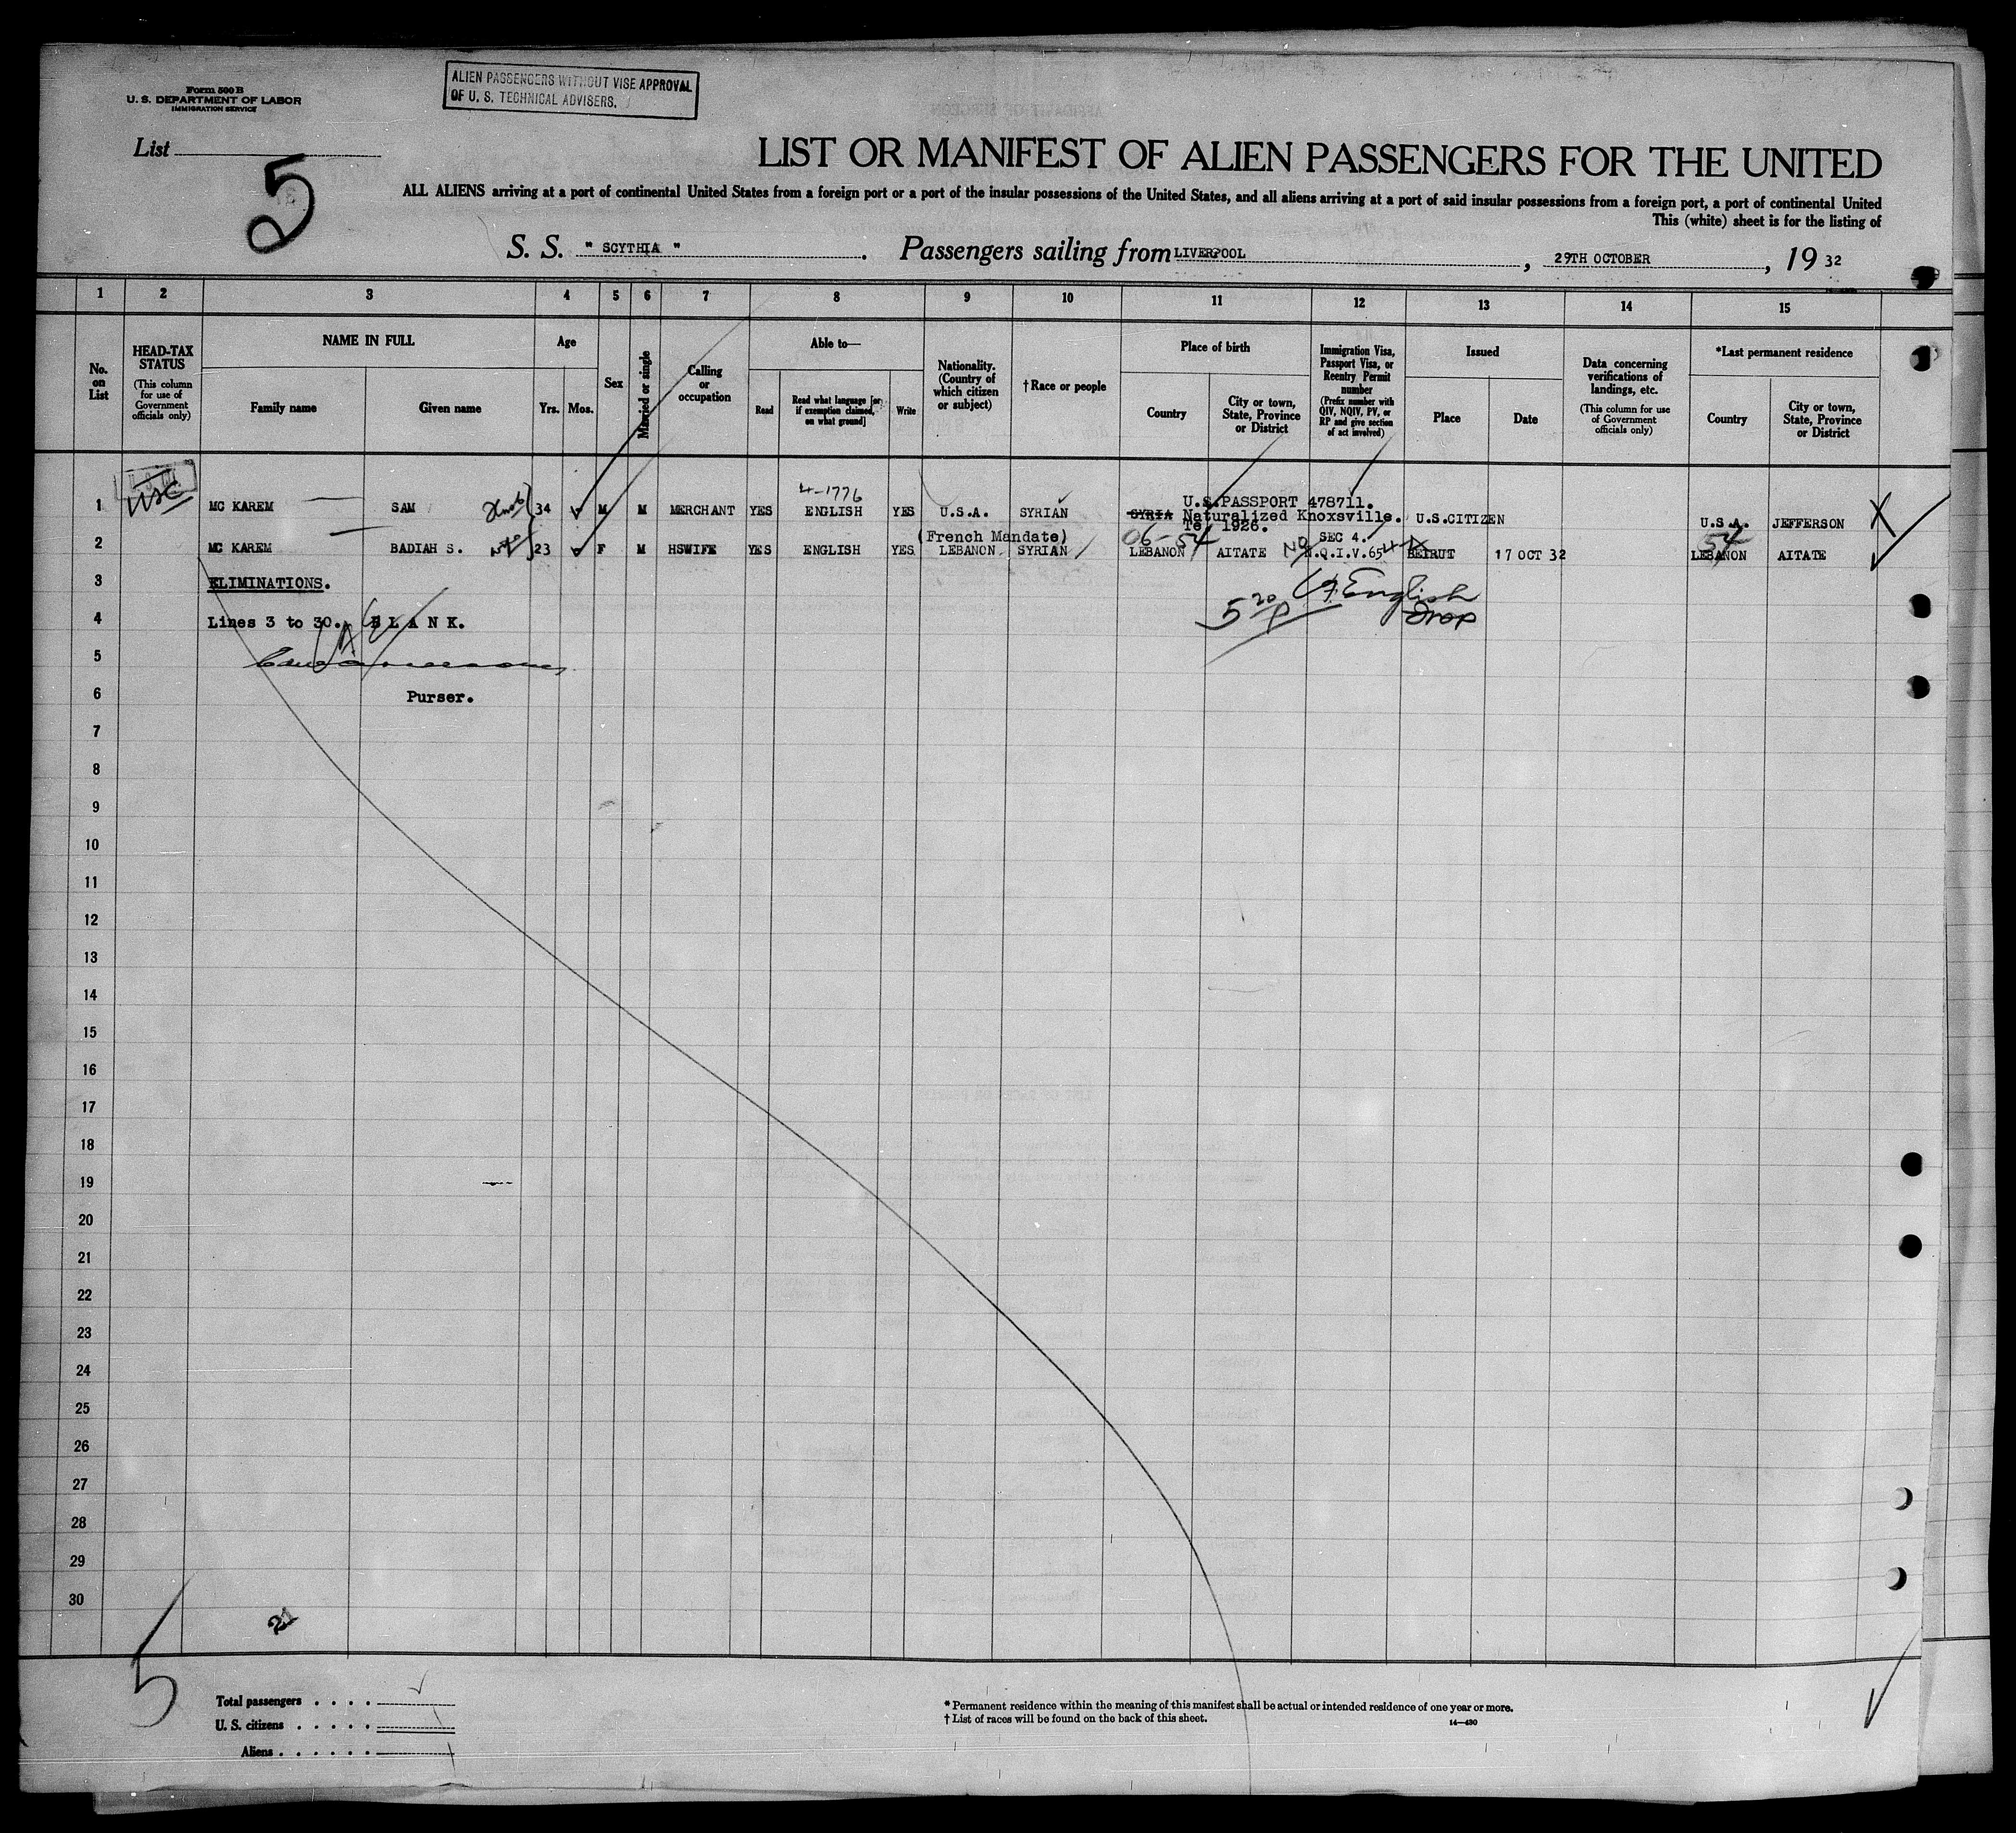 Form 500 B
U. S. DEPARTMENT OF LABOR
IMMIGRATION SERVICE
ALIEN PASSENGERS WITHOUT VISE APPROVAL
OF U. S. TECHNICAL ADVISERS.
List
5
LIST OR MANIFEST OF ALIEN PASSENGERS FOR THE UNITED
ALL ALIENS arriving at a port of continental United States from a foreign port or a port of the insular possessions of the United States, and all aliens arriving at a port of said insular possessions from a foreign port, a port of continental United
This (white) sheet is for the listing of
S. S. " SCYTHIA ". Passengers sailing from LIVERPOOL, 29TH OCTOBER, 19 32
1 2 3 4 5 6 7 8 9 10 11 12 13 14 15
No. on List
HEAD-TAX STATUS
(This column for use of Government officials only)
NAME IN FULL
Family name
Given name
Age
Yrs. Mos.
Sex
Married or single
Calling or occupation
Able to—
Read
Read what language [or, if exemption claimed, on what ground]
Write
Nationality. (Country of which citizen or subject)
† Race or people
Place of birth
Country
City or town, State, Province or District
Immigration Visa, Passport Visa, or Reentry Permit number
(Prefix number with QIV, NQIV, PV, or RP and give section of act involved)
Issued
Place
Date
Data concerning verifications of landings, etc.
(This column for use of Government officials only)
*Last permanent residence
Country
City or town, State, Province or District
4-1776
U.S.PASSPORT 478711.
1 USC MC KAREM SAM 34 M M MERCHANT YES ENGLISH YES U.S.A. SYRIAN SYRIA Naturalized Knoxsville. U.S.CITIZEN U.S.A. JEFFERSON X
Te 1926.
(French Mandate) 06-54 SEC 4. 54
2 MC KAREM BADIAH S. 23 F M HSWIFE YES ENGLISH YES LEBANON SYRIAN LEBANON AITATE NO N.Q.I.V.654 BEIRUT 17 OCT 32 LEBANON AITATE
3 ELIMINATIONS.
English
4 Lines 3 to 30. BLANK.
5
6 Purser.
7
8
9
10
11
12
13
14
15
16
17
18
19
20
21
22
23
24
25
26
27
28
29
30
21
5
Total passengers . . . .
U. S. citizens . . . . .
Aliens . . . . . .
* Permanent residence within the meaning of this manifest shall be actual or intended residence of one year or more.
† List of races will be found on the back of this sheet.
14—430